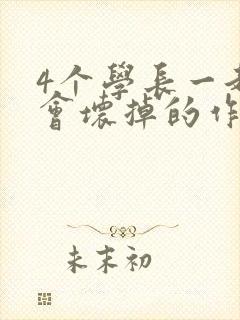 4个學長一
會壞掉的作
未末初